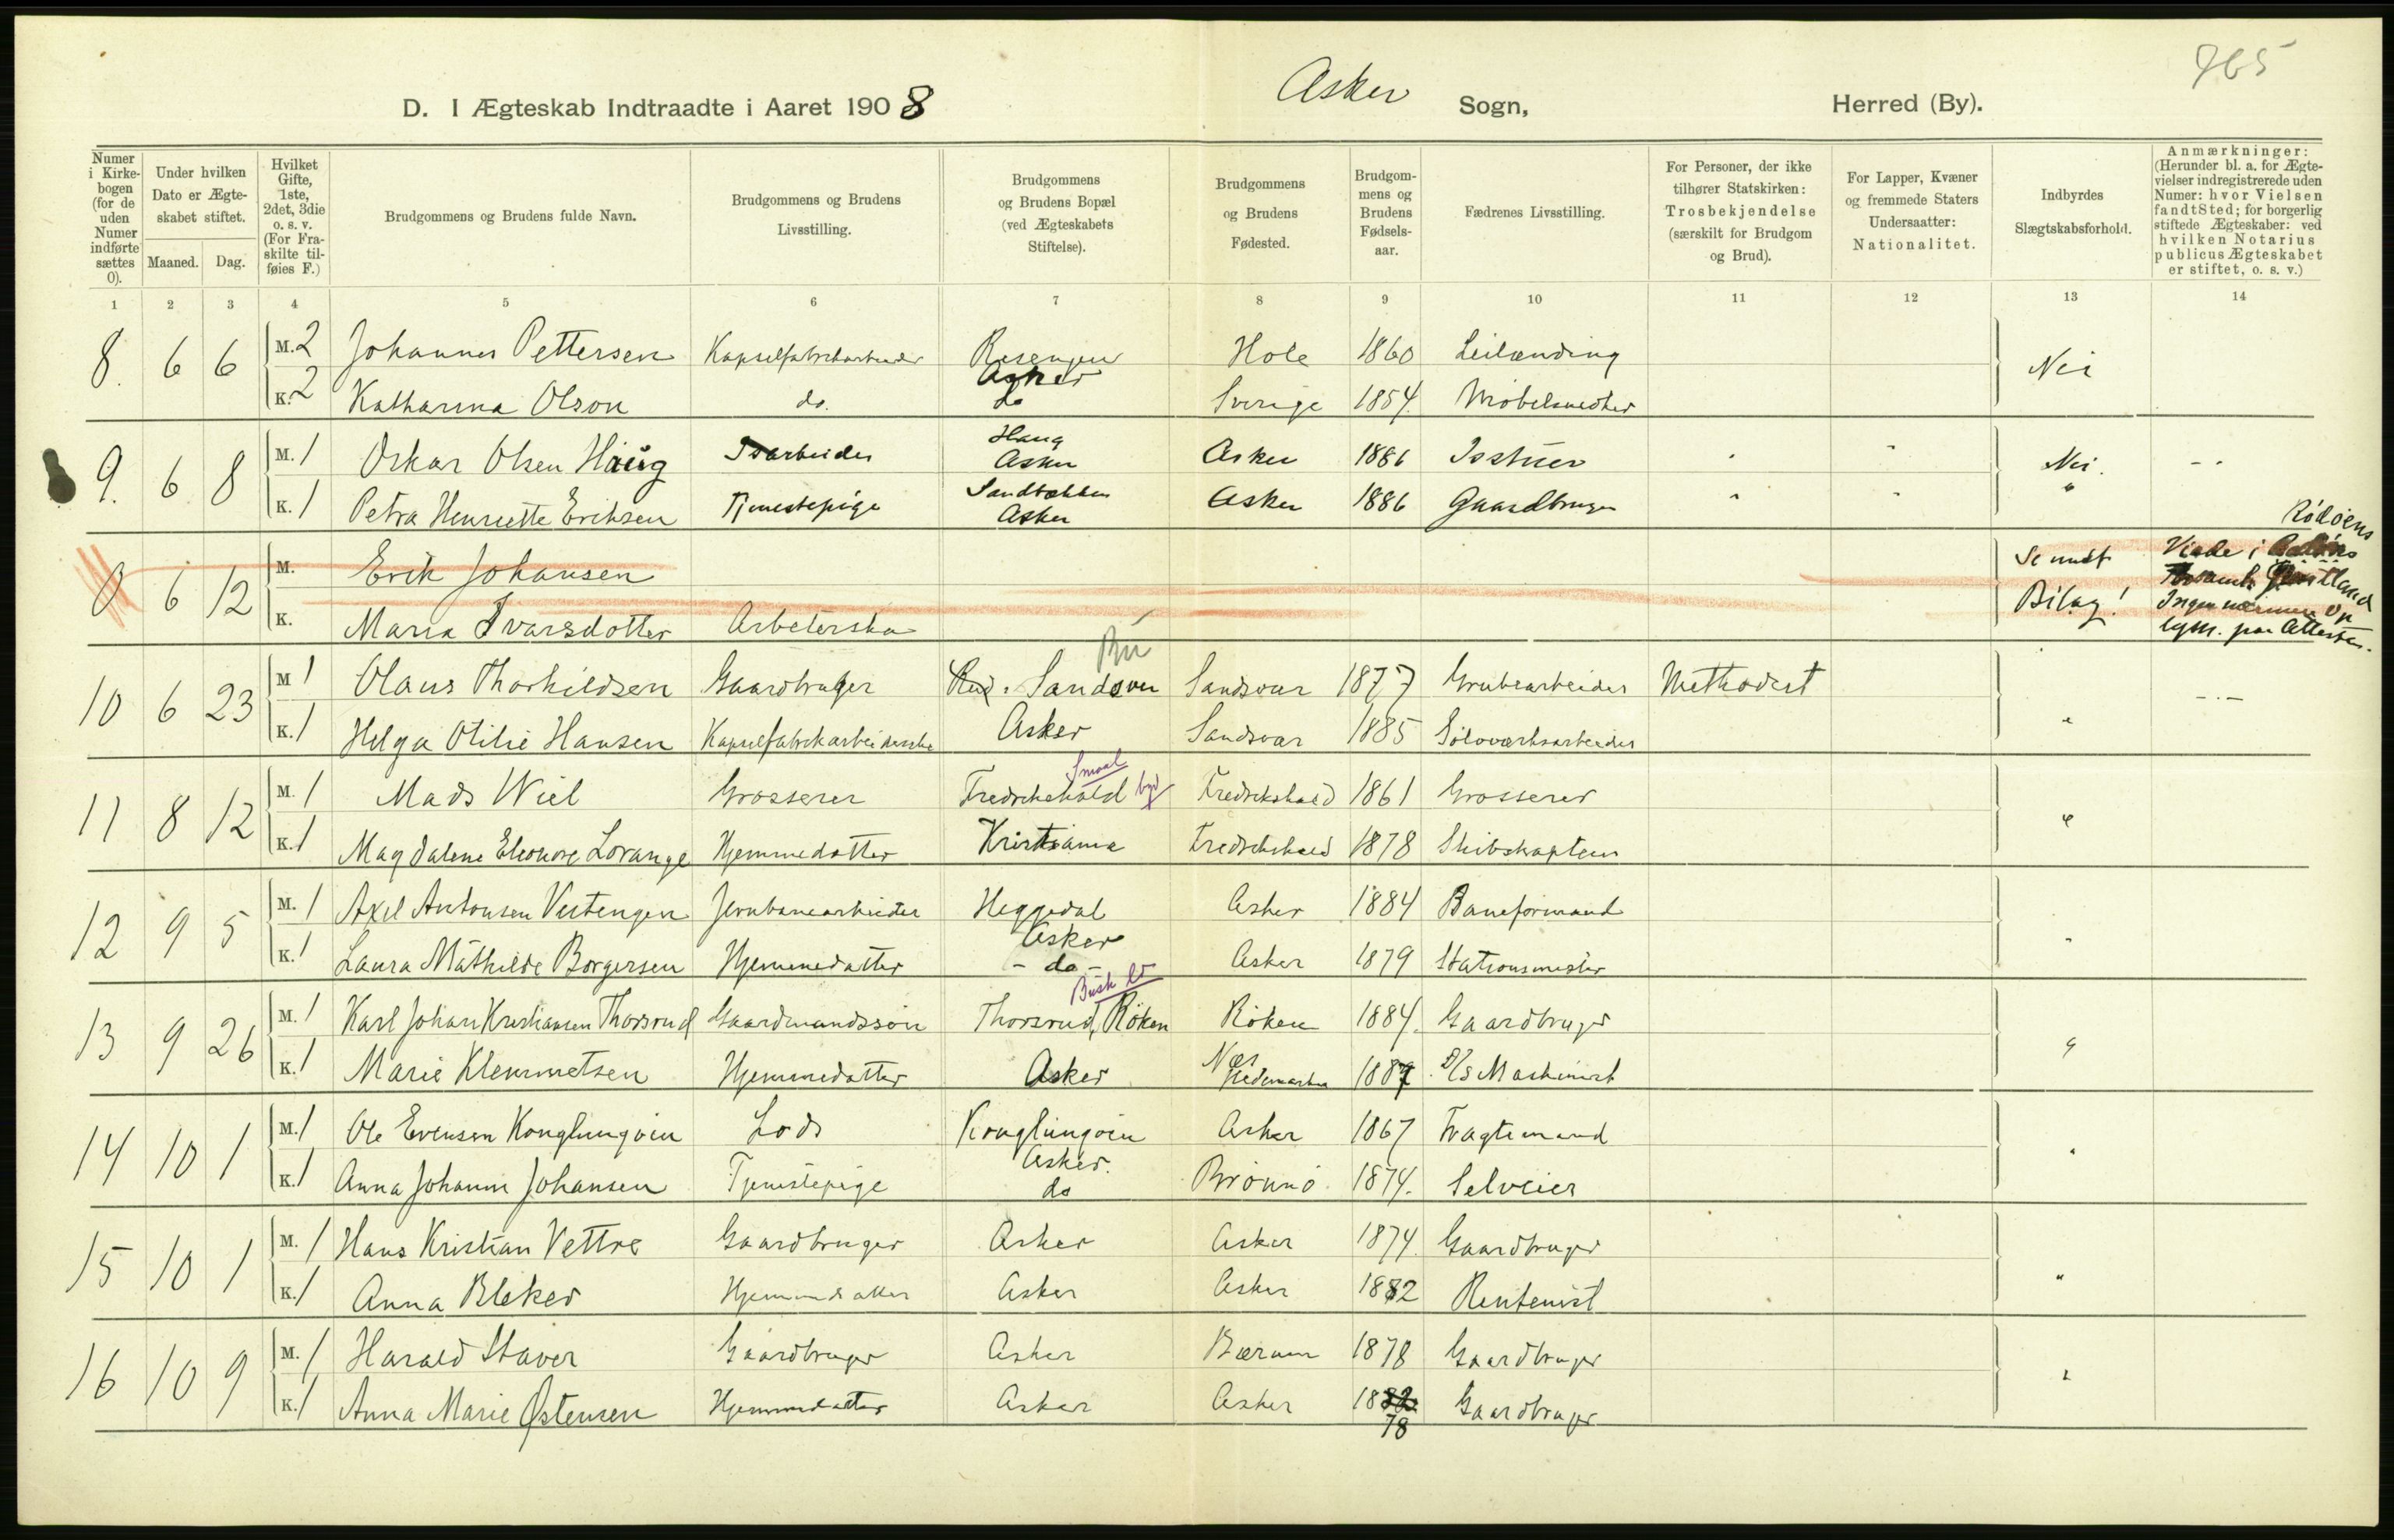 765
D. I Ægteskab Indtraadte i Aaret 1908 Asker Sogn, Herred (By).
Numer i Kirkebogen (for de uden Numer indførte sættes 0).
Under hvilken Dato er Ægteskabet stiftet.
Maaned. Dag.
Hvilket Gifte, 1ste, 2det, 3die o. s. v. (For Fraskilte tilføies F.)
Brudgommens og Brudens fulde Navn.
Brudgommens og Brudens Livsstilling.
Brudgommens og Brudens Bopæl (ved Ægteskabets Stiftelse).
Brudgommens og Brudens Fødested.
Brudgommens og Brudens Fødselsaar.
Fædrenes Livsstilling.
For Personer, der ikke tilhører Statskirken: Trosbekjendelse (særskilt for Brudgom og Brud).
For Lapper, Kvæner og fremmede Staters Undersaatter: Nationalitet.
Indbyrdes Slægtskabsforhold.
Anmærkninger: (Herunder bl. a. for Ægtevielser indregistrerede uden Numer: hvor Vielsen fandt Sted; for borgerlig stiftede Ægteskaber: ved hvilken Notarius publicus Ægteskabet er stiftet, o. s. v.)
1 2 3 4 5 6 7 8 9 10 11 12 13 14
8. 6 6 M. 2 Johannes Pettersen Kapselfabrikarbeider Resengen Asker Hole 1860 Leilænding Nei
K. 2 Katharina Olson do. do Sverige 1854. Möbelsnedker
9. 6 8 M. 1 Oskar Olsen Haug Isarbeider Haug Asker Asker 1886 Isstuer Nei.
K. 1 Petra Henriette Eriksen Tjenestepige Sandbakken Asker Asker 1886 Gaardbruger "
0 6 12 M. Erik Johansen Se undt Viede i Rödöens
K. Maria Ivarsdotter Arbeterska Bilag! Ingen nærmere Oplysn. paa Attesten.
10 6 23 M 1 Olaus Thorkildsen Gaardbruger Sandsvær Sandsvær 1877 Grubearbeider Methodist
K. 1 Helga Otilie Hansen Kapselfabrikarbeiderske Asker Sandsvær 1885 Sölvværksarbeider "
11 8 12 M. 1 Mads Wiel Grosserer Fredrikshald Smaal byd Fredrikshald 1861 Grosserer "
K. 1 Magdalene Eleonore Lorange Hjemmedatter Kristiania Fredrikshald 1878 Skibskaptein
12 9 5 M. 1 Axel Antonsen Vestengen Jernbanearbeider Heggedal Asker Asker 1884 Baneformand "
K. 1 Laura Mathilde Borgersen Hjemmedatter - do - Asker 1879 Stationsmester
13 9 26 M. 1 Karl Johan Kristiansen Thorsrud Gaardmandssön Thorsrud, Röken Busk Röken 1884. Gaardbruger "
K. 1 Marie Klemmetsen Hjemmedatter Asker Næs Hedemarken 1887 D/S Maskinist
14 10 1 M. 1 Ole Evensen Konglungöen Lods Konglungöen Asker. Asker 1867 Fragtemand "
K. 1 Anna Johanne Johansen Tjenestepige do Brönnö 1874. Selveier
15 10 1 M. 1 Hans Kristian Vettre Gaardbruger Asker Asker 1874. Gaardbruger "
K. 1 Anna Bleker Hjemmedatter Asker Asker 1882 Rentenist
16 10 9 M. 1 Harald Staver Gaardbruger Asker Bærum 1878 Gaardbruger "
K. 1 Anna Marie Østensen Hjemmedatter Asker Asker 1882 78 Gaardbruger